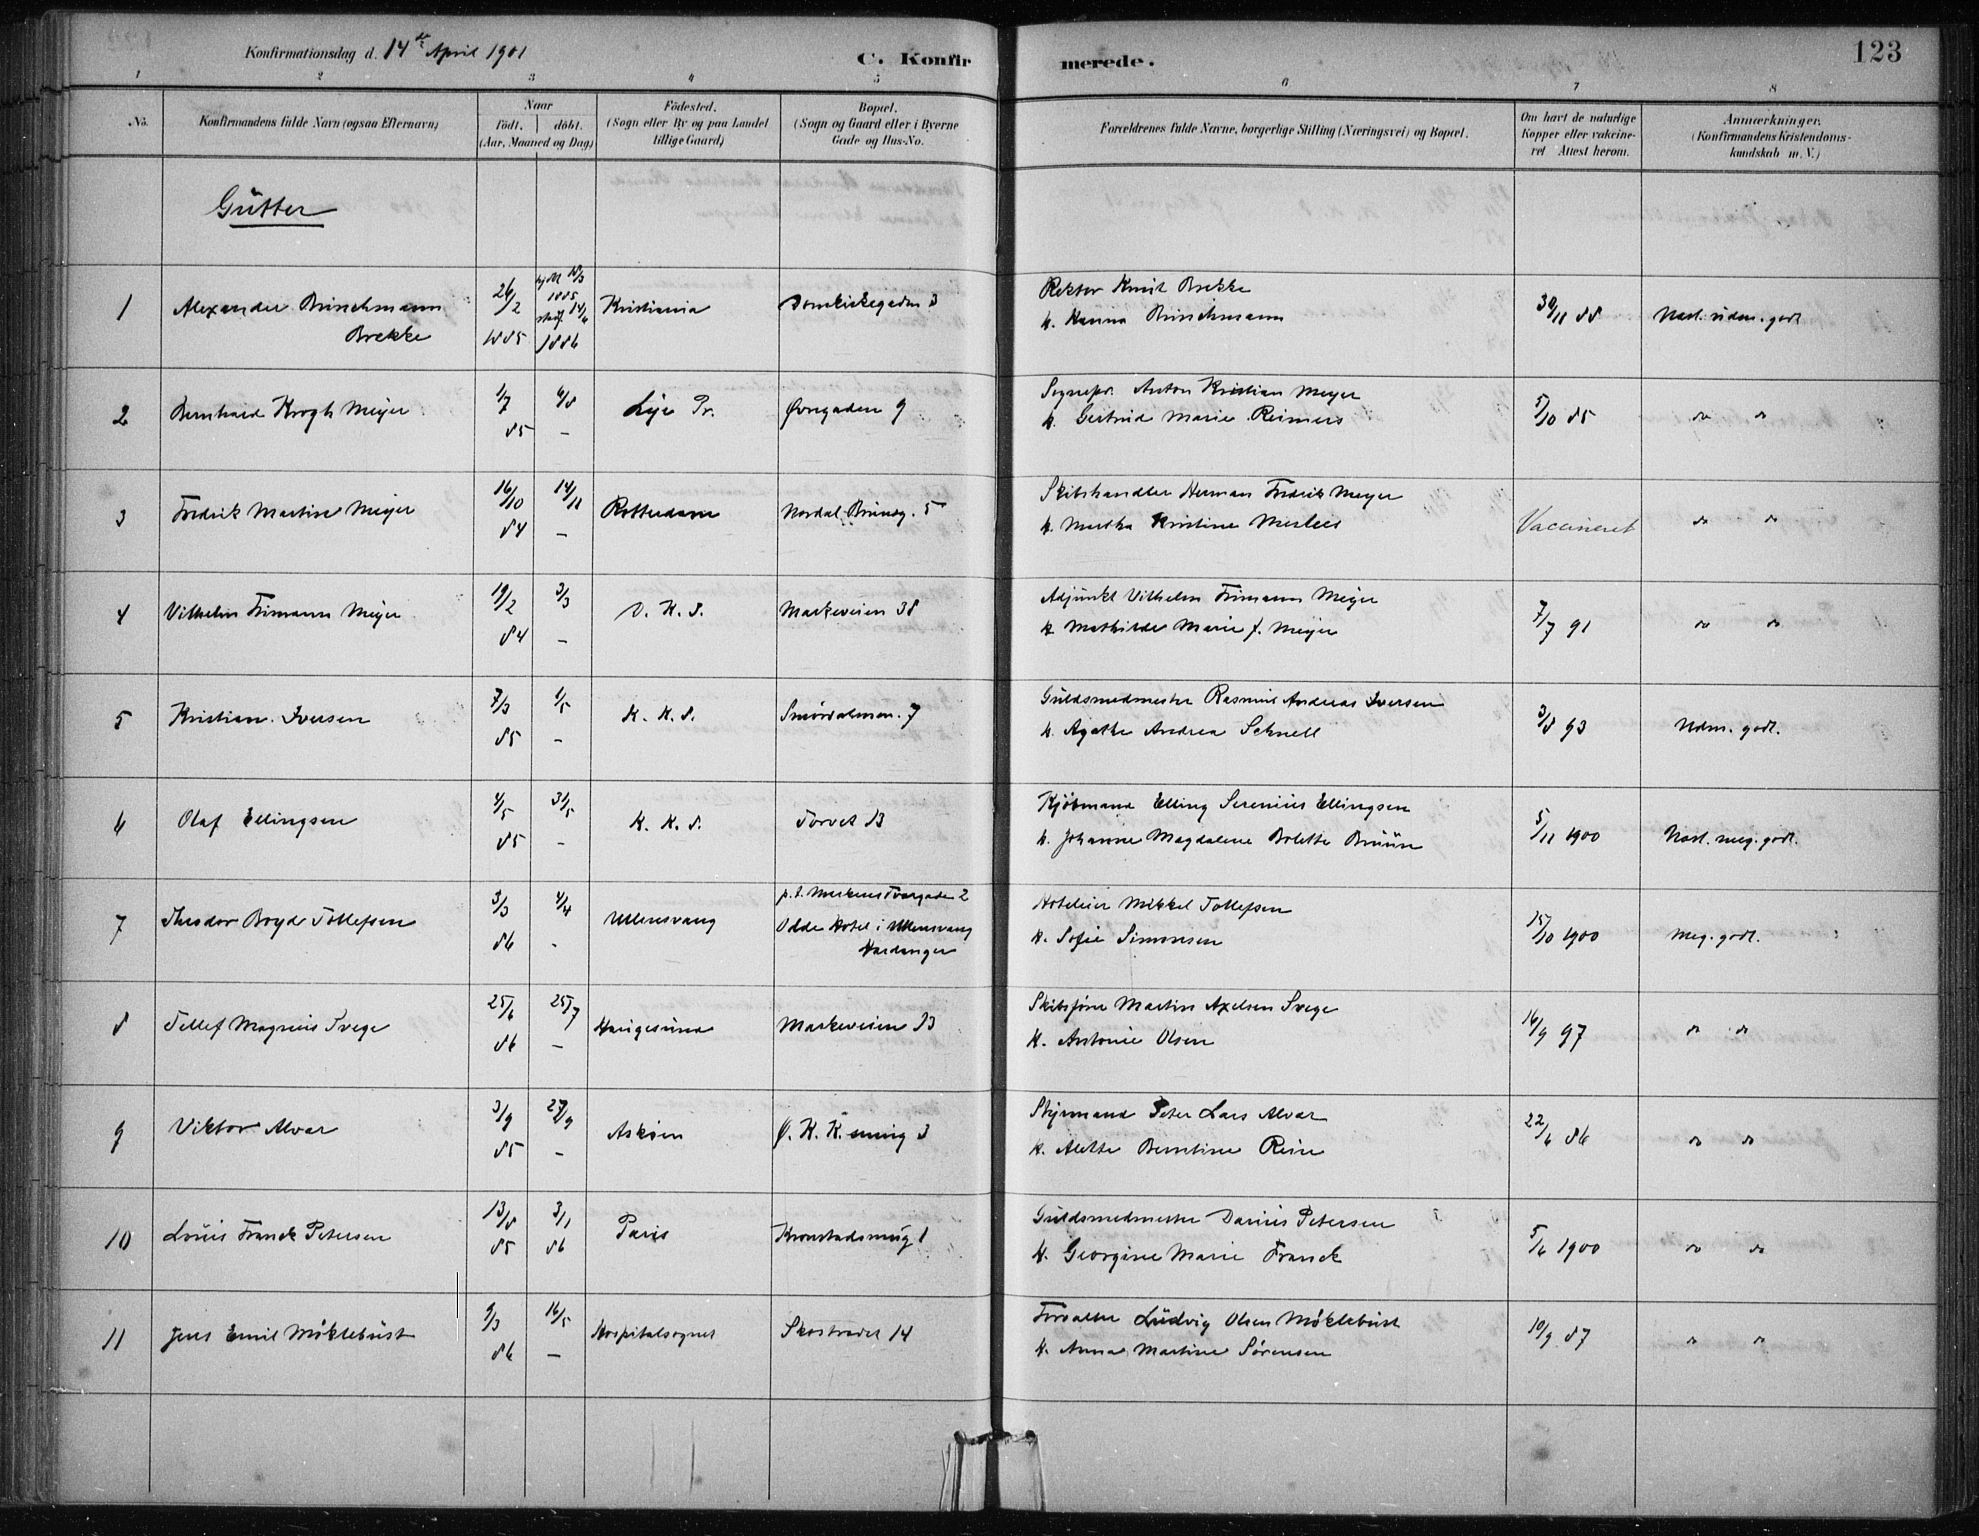 Konfirmationsdag d. 14de April 1901
C. Konfirmerede.
123
1 2 3 4 5 6 7 8
No.
Konfirmandens fulde Navn (ogsaa Efternavn)
Naar
født. døbt.
(Aar, Maaned og Dag)
Fødested.
(Sogn eller By og paa Landet
tillige Gaard)
Bopæl.
(Sogn og Gaard eller i Byerne
Gade og Hus-No.
Forældrenes fulde Navne, borgerlige Stilling (Næringsvei) og Bopæl.
Om havt de naturlige
Kopper eller vakcine-
ret Attest herom.
Anmærkninger.
(Konfirmandens Kristendoms-
kundskab m. V.)
Gutter
1 Alexander Brinchmann Brekke 26/2 1885 hjdbt 18/3 1885 1886 Kristiania Domkirkegaden 3
Rektor Knut Brekke
h. Hanna Brinchmann
30/11 88 Nast. udm. godt
2 Bernhard Krogh Meyer 1/7 85 4/8 – Lye Pr. Øvregaden 9
Sognepr. Anton Kristian Meyer
h. Gertrud Marie Reimers
5/10 85 do do
3 Fredrik Martin Meyer 16/10 84 14/11 – Rotterdam Nordal Brunsg. 5
Skibshandler Herman Fredrik Meyer
h. Martha Kristine
Vaccineret do do
4 Vilhelm Frimann Meyer 19/2 84 3/3 – D. K. S. Markeveien 38
Adjunkt Vilhelm Frimann Meyer
h. Mathilde Marie f. Meyer
7/7 91 do do
5 Kristian Iversen 7/3 85 1/5 – K. K. S. Smørsalmen. 7
Guldsmedmester Rasmus Andreas Iversen
h. Agathe Andrea Schnell
3/8 93 Udm. godt.
6 Olaf Ellingsen 4/5 85 31/5 – K. K. S. Torvet 13
Kjøbmand Elling Serenius Ellingsen
h. Johanne Magdalene Bolette Bruun
5/11 1900 Nast. meg. godt.
7 Theodor Boyd Tollefsen 3/3 86 4/4 - Ullensvang p. t. Markens Tvergade 2
Odde Hotel i Ullensvang
Hardanger
Hoteleier Mikkel Tollefsen
h. Sofie Simonsen
15/10 1900 Meg. godt.
8 Tellef Magnus Svege 25/6 86 25/7 – Haugesund Markeveien 13
Skibsføre Martin Axelsen Svege
h. Antonie Olsen
16/9 97 do do
9 Viktor Alvar 3/9 85 27/9 – Askøen Ø. K. K. smug 3
Styrmand Peter Lars Alvar
h. Alette Berntine Rein
22/6 86 do do
10 Louis Franck Petersen 13/8 85 3/1 86 Paris Kronstadsmug 1
Guldsmedmester Darius Petersen
h. Georgine Marie Franck
5/6 1900 do do
11 Jens Emil Møklebust 9/3 86 16/5 – Hospitalsognet Skostredet 14
Forvalter Ludvig Olsen Møklebust
h. Anna Martine Sørensen
10/9 87 do do